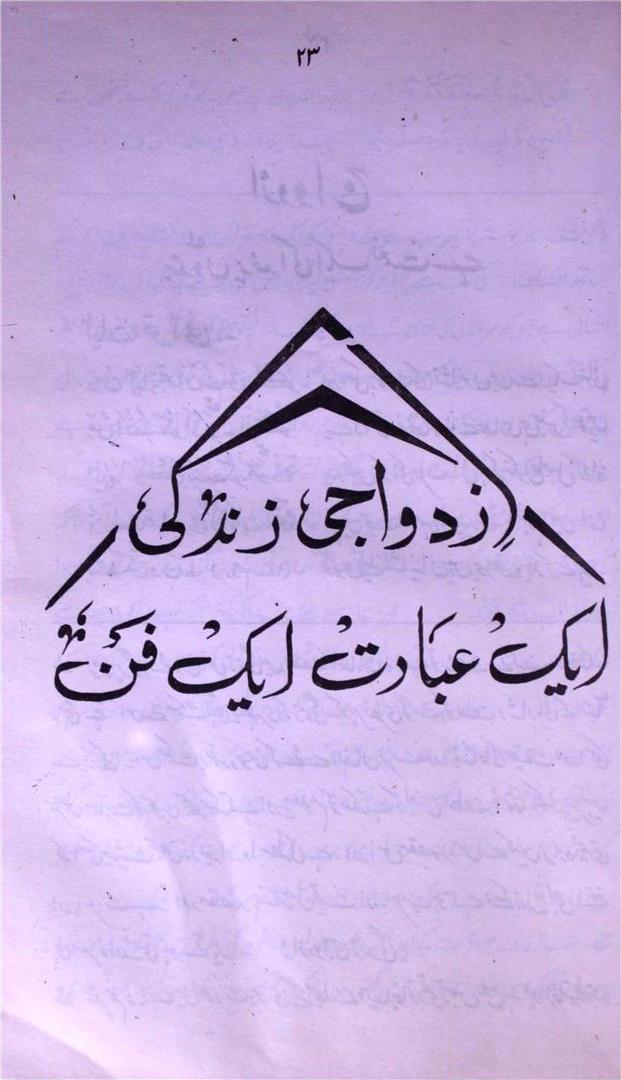 ۲۳
ازدواجی زندگی
ایک عبادت ایک فن